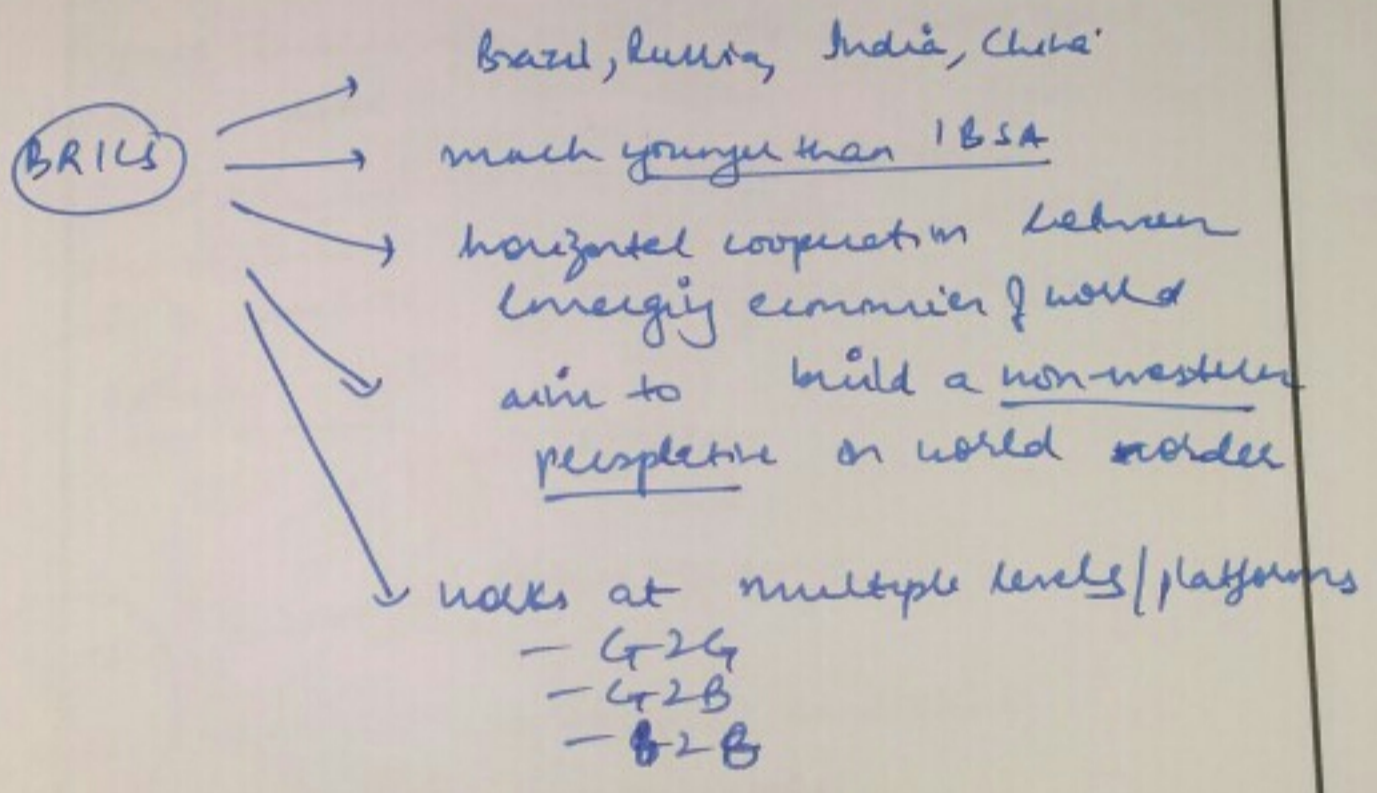 Brazil, Russia, India, China
BRICS
much younger than IBSA
horizontal cooperation between
emerging economies of world
aim to build a non-western
perspective on world order
works at multiple levels/platforms
- G2G
- G2B
- B2B